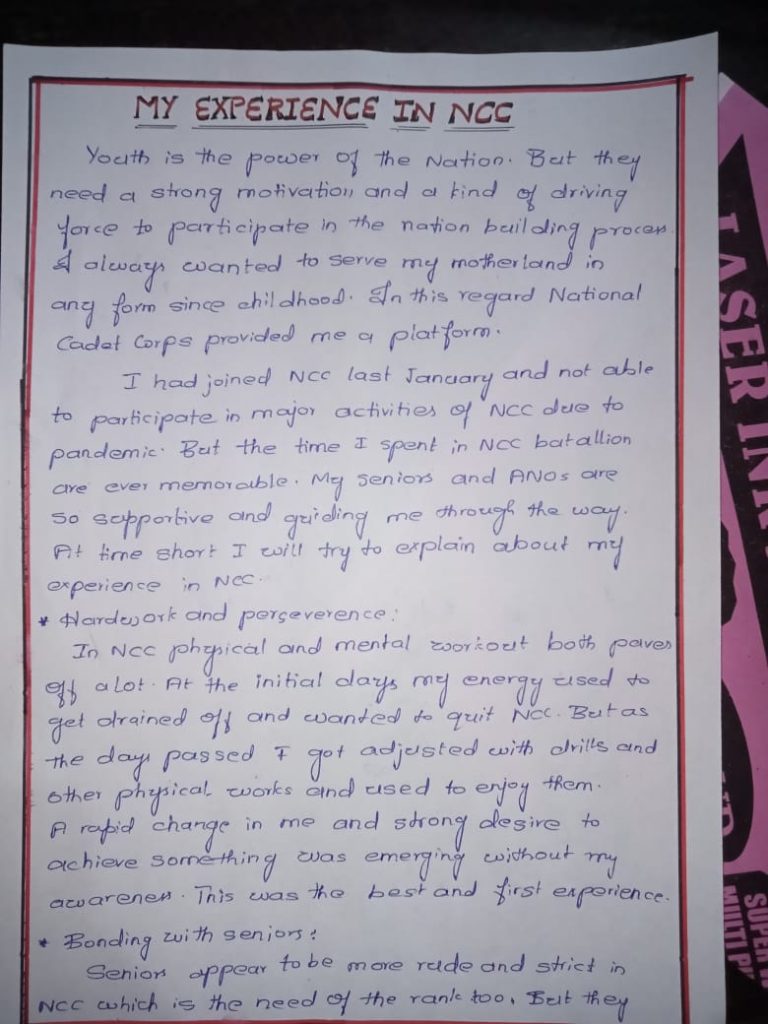 MY EXPERIENCE IN NCC
Youth is the power of the Nation. But they
need a strong motivation and a kind of driving
force to participate in the nation building process.
I always wanted to serve my motherland in
any form since childhood. In this regard National
Cadet Corps provided me a platform.
I had joined NCC last January and not able
to participate in major activities of NCC due to
pandemic. But the time I spent in NCC batallion
are ever memorable. My seniors and ANOs are
so supportive and guiding me through the way.
At time short I will try to explain about my
experience in NCC.
* Hardwork and perseverence:
In NCC physical and mental workout both paves
off a lot. At the initial days my energy used to
get drained off and wanted to quit NCC. But as
the days passed I got adjusted with drills and
other physical works and used to enjoy them.
A rapid change in me and strong desire to
achieve something was emerging without my
awareness. This was the best and first experience.
* Bonding with seniors:
Seniors appear to be more rude and strict in
NCC which is the need of the rank too. But they
LASER
SUPER
MULTI